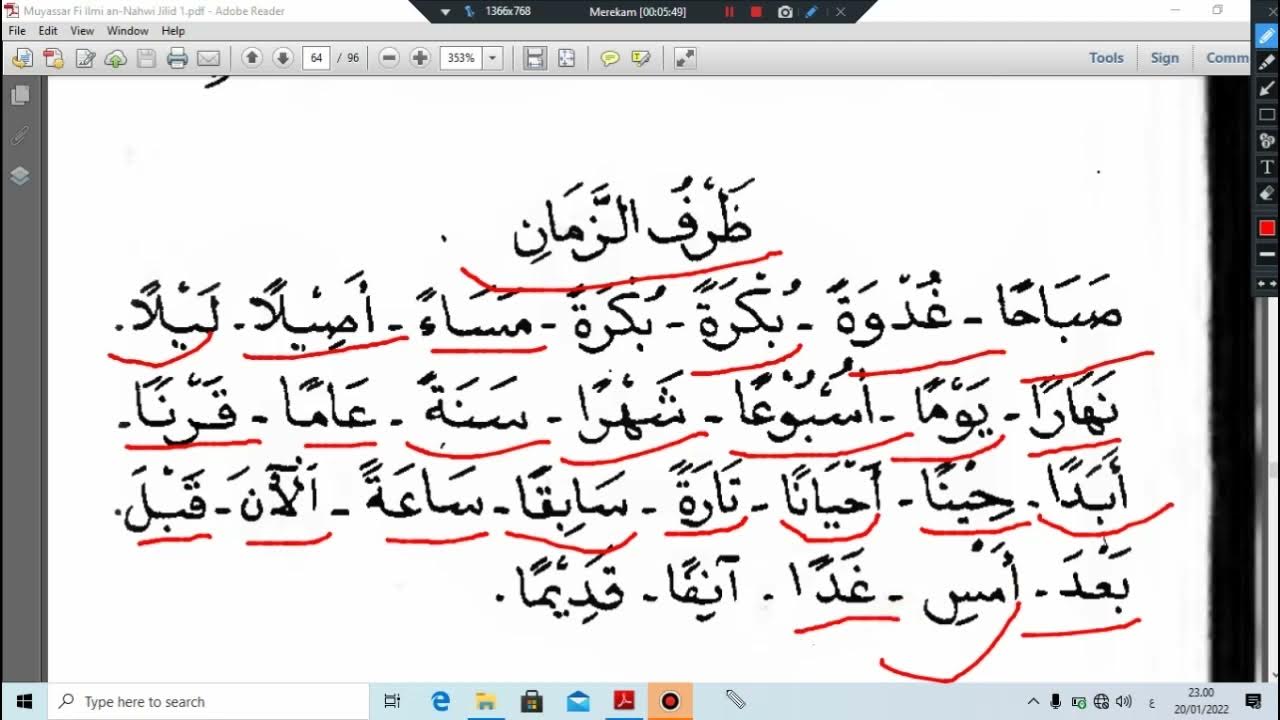 Muyassar Fi Ilmi an-Nahwi Jilid 1.pdf - Adobe Reader
1366x768
Merekam [00:05:49]
File Edit View Window Help
64 / 96
353%
Tools Sign Comm
ظَرْفُ الزَّمَانِ
صَبَاحًا - غُدْوَةً - بُكْرَةً - بُكْرَةً - مَسَاءً - أَصِيْلًا - لَيْلًا.
نَهَارًا - يَوْمًا - أُسْبُوْعًا - شَهْرًا - سَنَةً - عَامًا - قَرْنًا -
أَبَدًا - حِيْنًا - أَحْيَانًا - تَارَةً - سَابِقًا - سَاعَةً - اَلْآنَ - قَبْلَ.
بَعْدَ - أَمْسِ - غَدًا - آنِفًا - قَدِيْمًا.
T
Type here to search
ع
23.00
20/01/2022